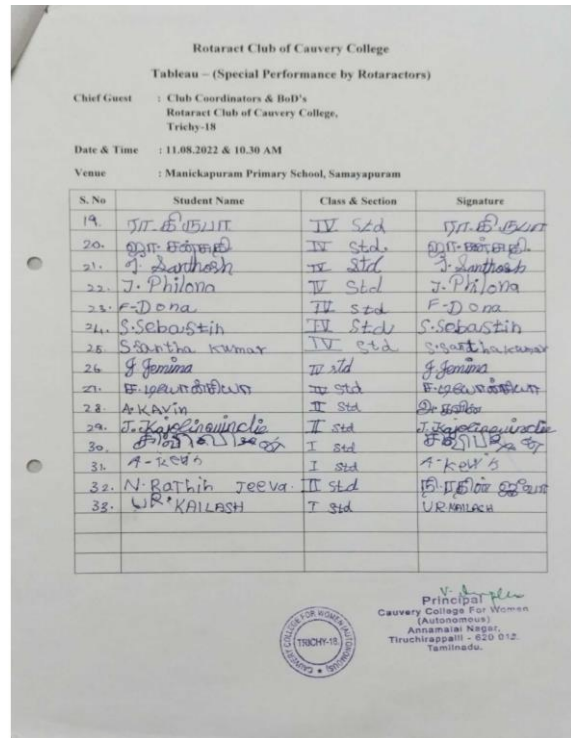 Rotaract Club of Cauvery College
Tableau – (Special Performance by Rotaractors)
Chief Guest : Club Coordinators & BoD's
Rotaract Club of Cauvery College,
Trichy-18
Date & Time : 11.08.2022 & 10.30 AM
Venue : Manickapuram Primary School, Samayapuram
S. No Student Name Class & Section Signature
19. IV Std
20. IV Std.
21. J. Santhosh IV Std J. Santhosh
22. J. Philona IV Std J. Philona
23. F-Dona IV Std F-Dona
24. S.Sebastin IV Std S.Sebastin
25 S.Santha kumar IV Std S.Santhakumar
26 J Jemima IV std J Jemima
27. IV Std
28. A.KAViN II Std
29. II Std
30. I Std
31. I Std
32. N. Rathin Jeeva. II Std
33. U.R. KAILASH I Std U R KAILACH
Principal
Cauvery College For Women
(Autonomous)
Annamalai Nagar,
Tiruchirappalli - 620 012.
Tamilnadu.
CAUVERY COLLEGE FOR WOMEN (AUTONOMOUS)
TRICHY-18.